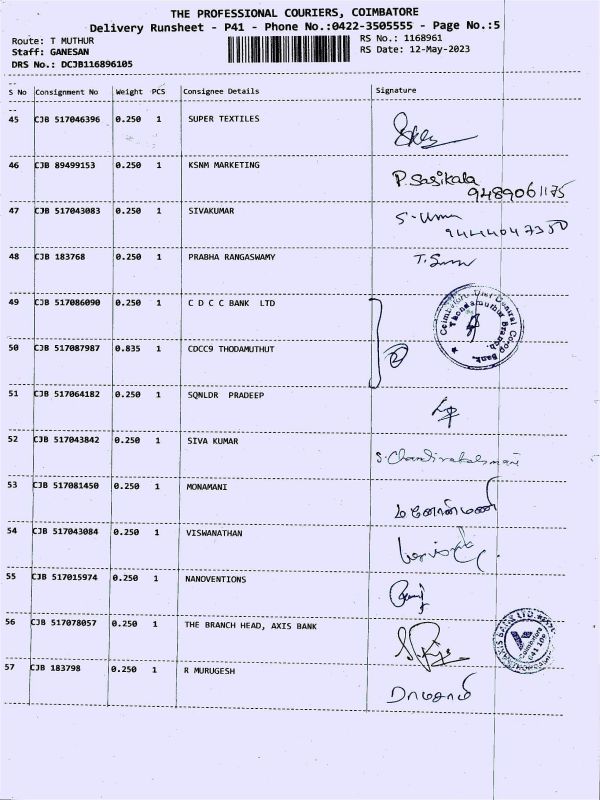 THE PROFESSIONAL COURIERS, COIMBATORE
Delivery Runsheet - P41 - Phone No.:0422-3505555 - Page No.:5
Route: T MUTHUR
Staff: GANESAN
DRS No.: DCJB116896105
RS No.: 1168961
RS Date: 12-May-2023
S No Consignment No Weight PCS Consignee Details Signature
45 CJB 517046396 0.250 1 SUPER TEXTILES
46 CJB 89499153 0.250 1 KSNM MARKETING P. Sasikala
9489061175
47 CJB 517043083 0.250 1 SIVAKUMAR S. Uma
9444047350
48 CJB 183768 0.250 1 PRABHA RANGASWAMY
49 CJB 517086090 0.250 1 C D C C BANK LTD
50 CJB 517087987 0.835 1 CDCC9 THODAMUTHUT
Coimbatore Dist Central Co-op Bank.
Thondamuthur Branch.
51 CJB 517064182 0.250 1 SQNLDR PRADEEP
52 CJB 517043842 0.250 1 SIVA KUMAR
53 CJB 517081450 0.250 1 MONAMANI மனோன்மணி
54 CJB 517043084 0.250 1 VISWANATHAN
55 CJB 517015974 0.250 1 NANOVENTIONS
56 CJB 517078057 0.250 1 THE BRANCH HEAD, AXIS BANK
AXIS BANK LTD.
Coimbatore
641 109
57 CJB 183798 0.250 1 R MURUGESH ராமசாமி